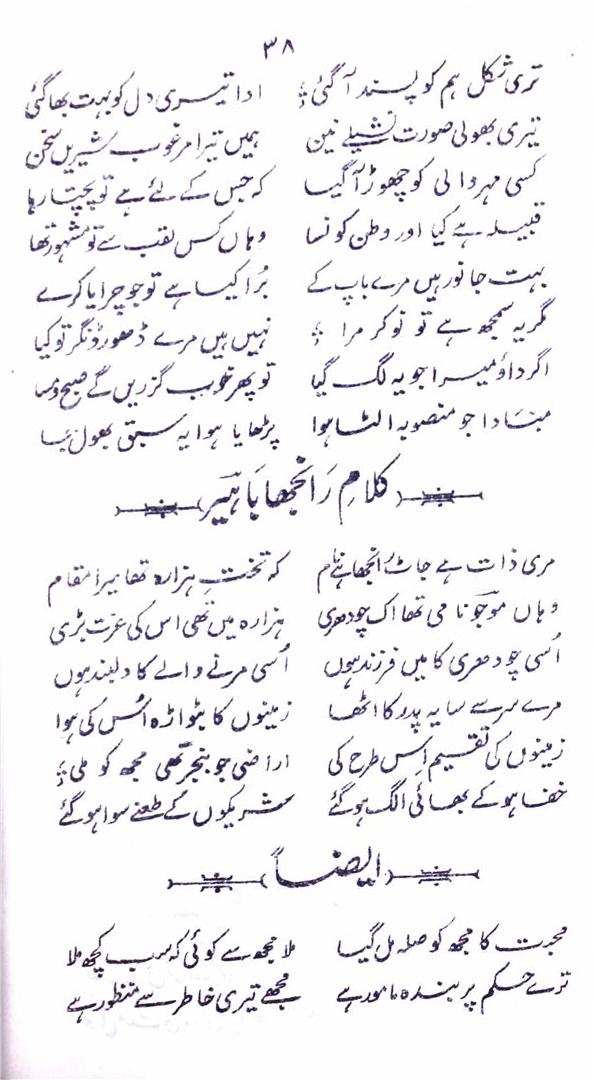 ۳۸
تری شکل ہم کو پسند آ گئی ادا تیری دل کو بہت بھا گئی
تیری بھولی صورت نشیلے نین ہمیں تیرا مرغوب شیریں سخن
کسی مہر والی کو چھوڑ آ گیا کہ جس کے لئے ہے تو پچتا رہا
قبیلہ ہے کیا اور وطن کونسا وہاں کس لقب سے تو مشہور تھا
بہت جانور ہیں مرے باپ کے بُرا کیسا ہے تو جو چرایا کرے
مگر یہ سمجھ ہے تو نوکر مرا نہیں ہیں مرے ڈھور ڈنگر تو کیا
اگر داؤ میرا جو یہ لگ گیا تو پھر خوب گزریں گے صبح و مسا
مبادا جو منصوبہ الٹا ہوا پڑھایا ہوا یہ سبق بھول
کلامِ رَانجھا بَا ہِیَر
مری ذات ہے جاٹ رانجھا ہے نام کہ تختِ ہزارہ تھا میرا مقام
وہاں موجو نامی تھا اک چودھری ہزارہ میں تھی اس کی عزت بڑی
اُسی چودھری کا میں فرزند ہوں اُسی مرنے والے کا دلبند ہوں
مرے سر سے سایہ پدر کا اٹھا زمینوں کا بٹواڑہ اُس کی ہوا
زمینوں کی تقسیم اِس طرح کی اراضی جو بنجر تھی مجھ کو ملی
خفا ہو کے بھائی الگ ہو گئے شریکوں کے طعنے سوا ہو گئے
ایضاً
محبت کا مجھ کو صلہ مل گیا ملا مجھ سے کوئی کہ سب کچھ ملا
ترے حکم پر بندہ مامور ہے مجھے تیری خاطر سے منظور ہے